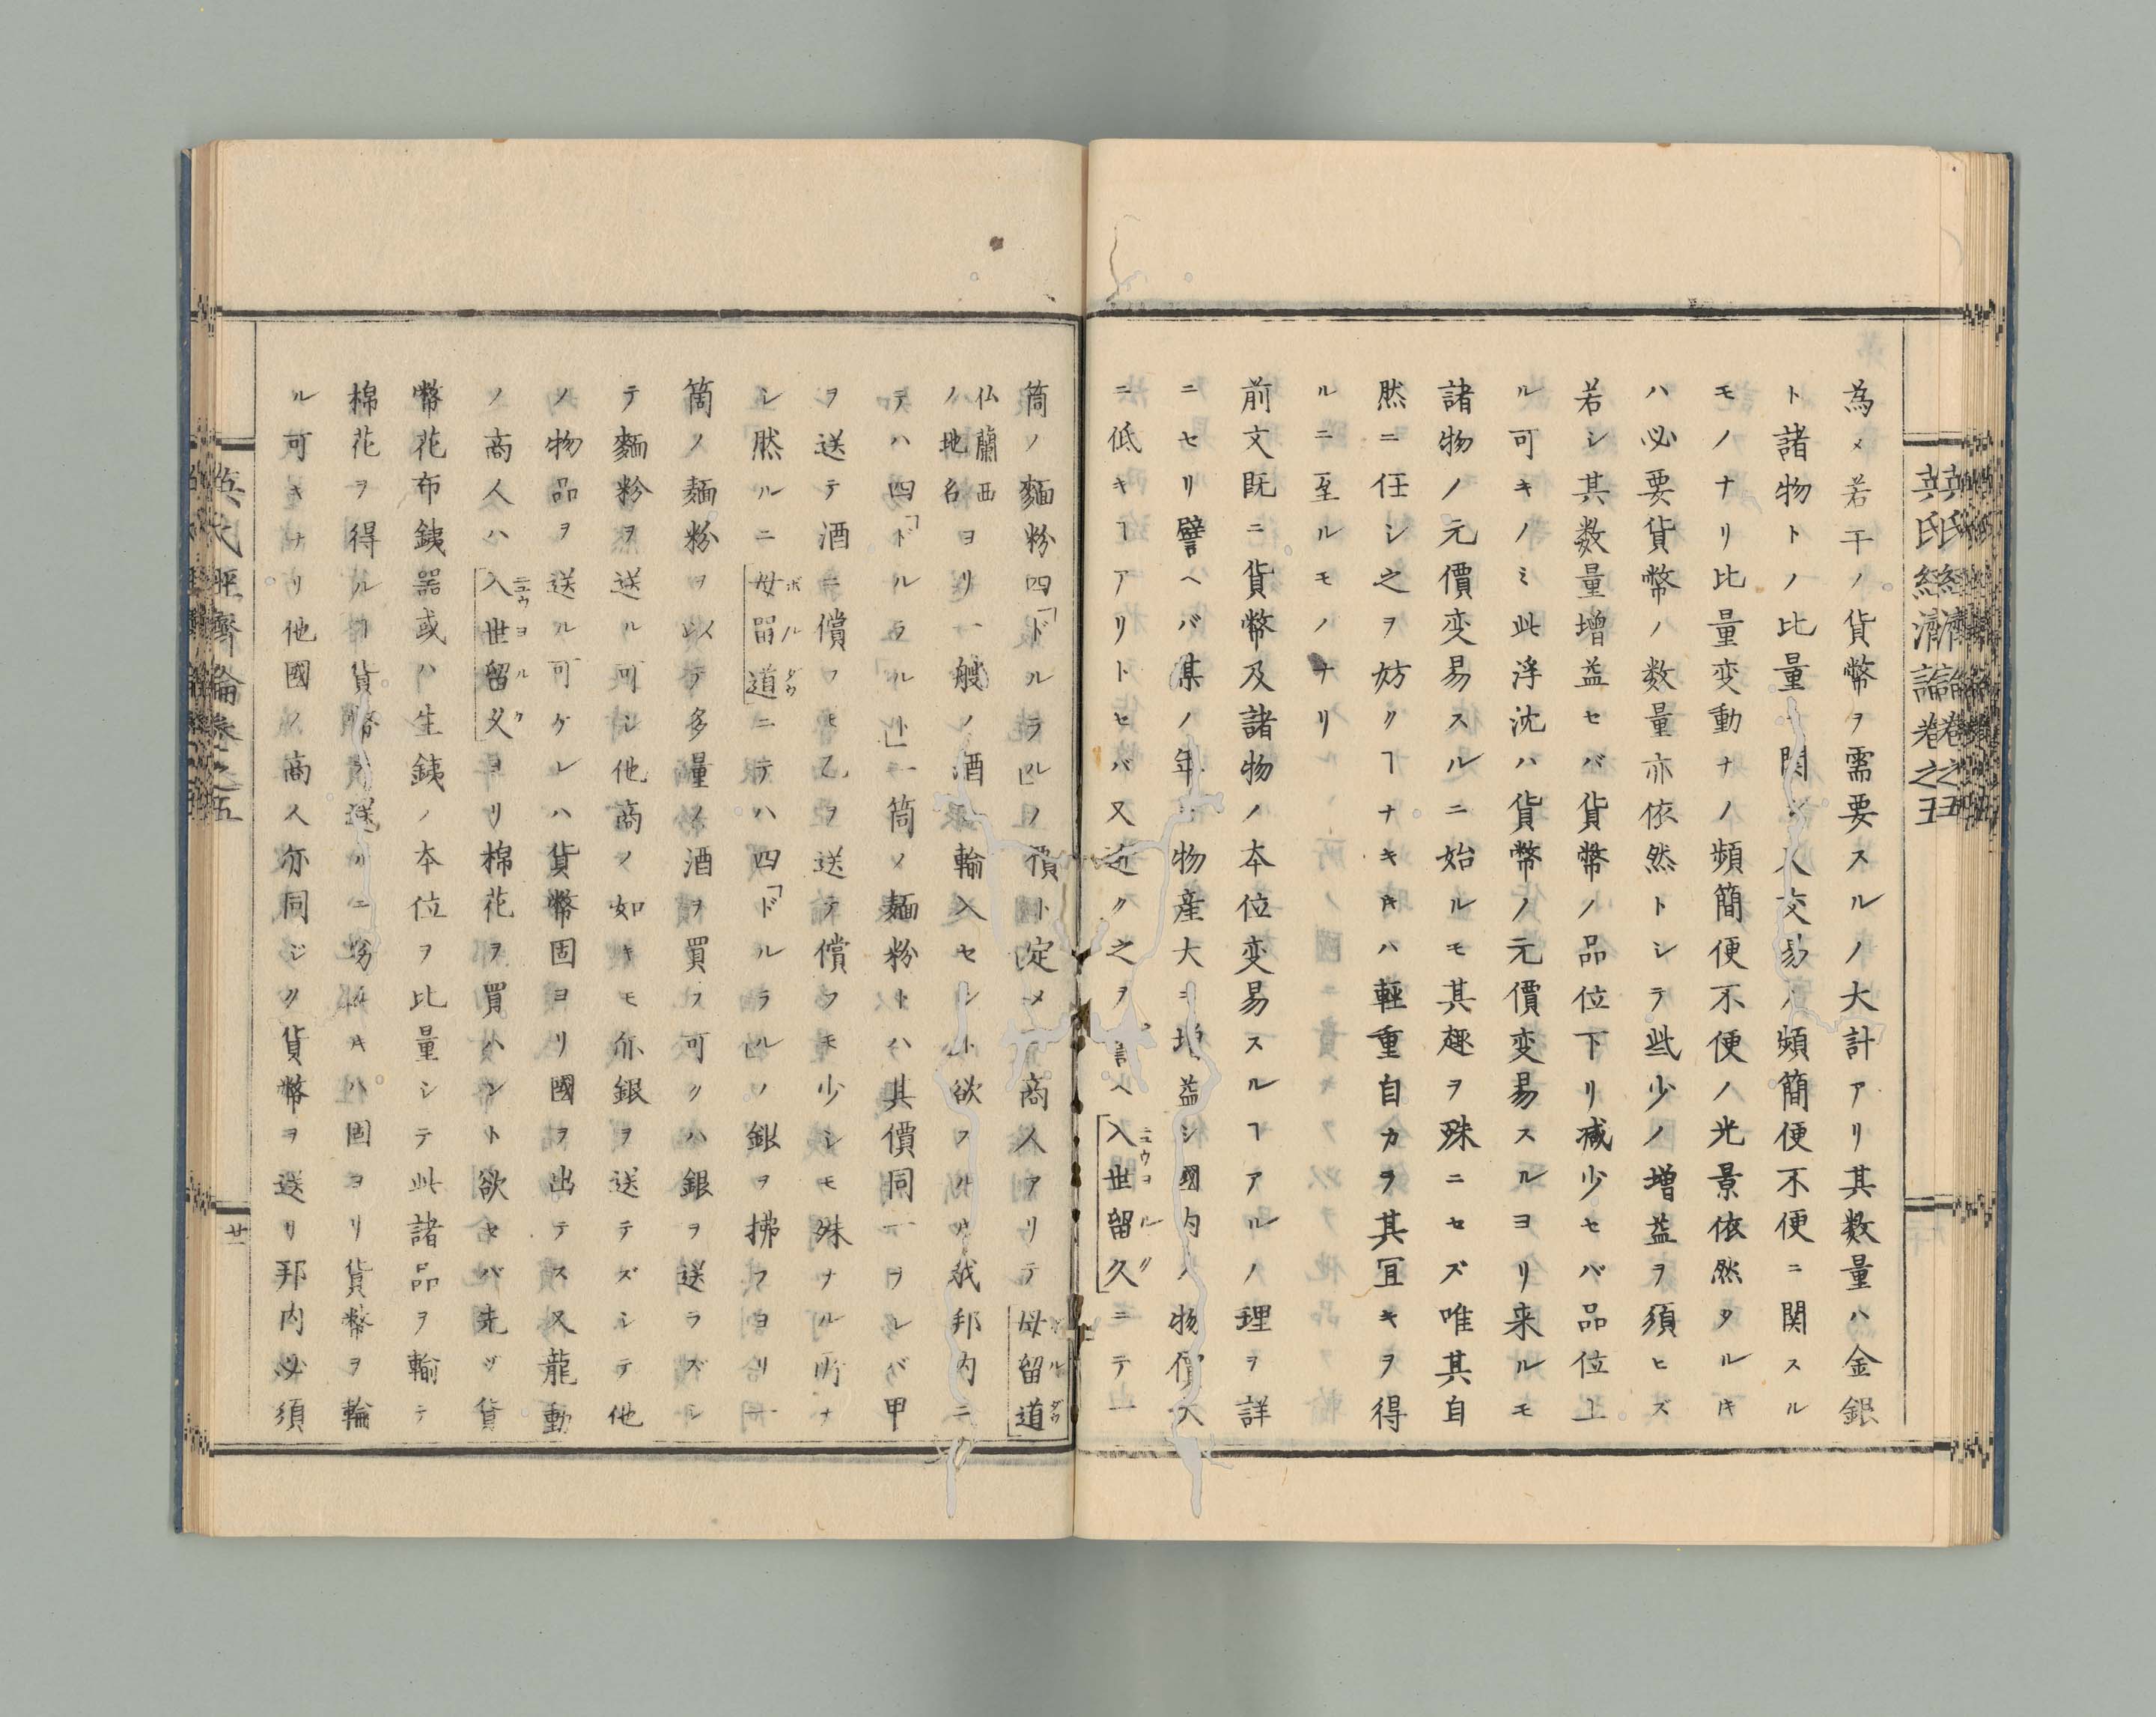 英氏経済論巻之五
為メ若干ノ貨幣ヲ需要スルノ大計アリ其数量ハ金銀
ト諸物トノ比量ニ関シ又交易ノ頻簡便不便ニ関スル
モノナリ比量変動ナノ頻簡便不便ノ光景依然タルトキ
ハ必要貨幣ノ数量亦依然トシテ些少ノ増益ヲ須ヒズ
若シ其数量増益セバ貨幣ノ品位下リ減少セバ品位上
ル可キノミ此浮沈ハ貨幣ノ元價変易スルヨリ来ルモ
諸物ノ元價変易スルニ始ルモ其趣ヲ殊ニセズ唯其自
然ニ任シ之ヲ妨クヿナキトキハ輕重自カラ其宜キヲ得
ルニ至ルモノナリ
前文既ニ貨幣及諸物ノ本位変易スルヿアルノ理ヲ詳
ニセリ譬ヘバ某ノ年ニ物産大ニ増益シ國内ノ物價大
ニ低キヿアリトセバ又近ク之ヲ言ヘ入世留久ニテ一
ニユウヨルク
筒ノ麺粉四「ドルラル」ノ價ト定メ商人アリテ母留道
ボルダウ
仏蘭西ノ地名ヨリ一艘ノ酒輸入セント欲スルトキ我邦内ニ
テハ四「ドルラル」ト一筒ノ麺粉トハ其價同一ヲレバ甲
ヲ送テ酒ニ償フモ乙ヲ送テ償フモ少シモ殊ナル所ナ
シ然ルニ母留道ニテハ四「ドルラル」ノ銀ヲ拂フヨリ一
ボルダウ
筒ノ麺粉ヲ以テ多量ノ酒ヲ買フ可クハ銀ヲ送ラズシ
テ麺粉ヲ送ル可シ他商ノ如キモ亦銀ヲ送テズシテ他
ノ物品ヲ送ル可ケレハ貨幣固ヨリ國ヲ出テス又龍動
ノ商人ハ入世留久ヨリ棉花ヲ買ハント欲セバ先ヅ貨
ニユウヨルク
幣花布鉄器或ハ生鉄ノ本位ヲ比量シテ此諸品ヲ輸テ
棉花ヲ得ルヿ貨幣ヲ送ルニ勝ルトキハ固ヨリ貨幣ヲ輸
ル可キナリ他國ノ商人亦同ジク貨幣ヲ送リ邦内必須
英氏経済論巻之五
廿一